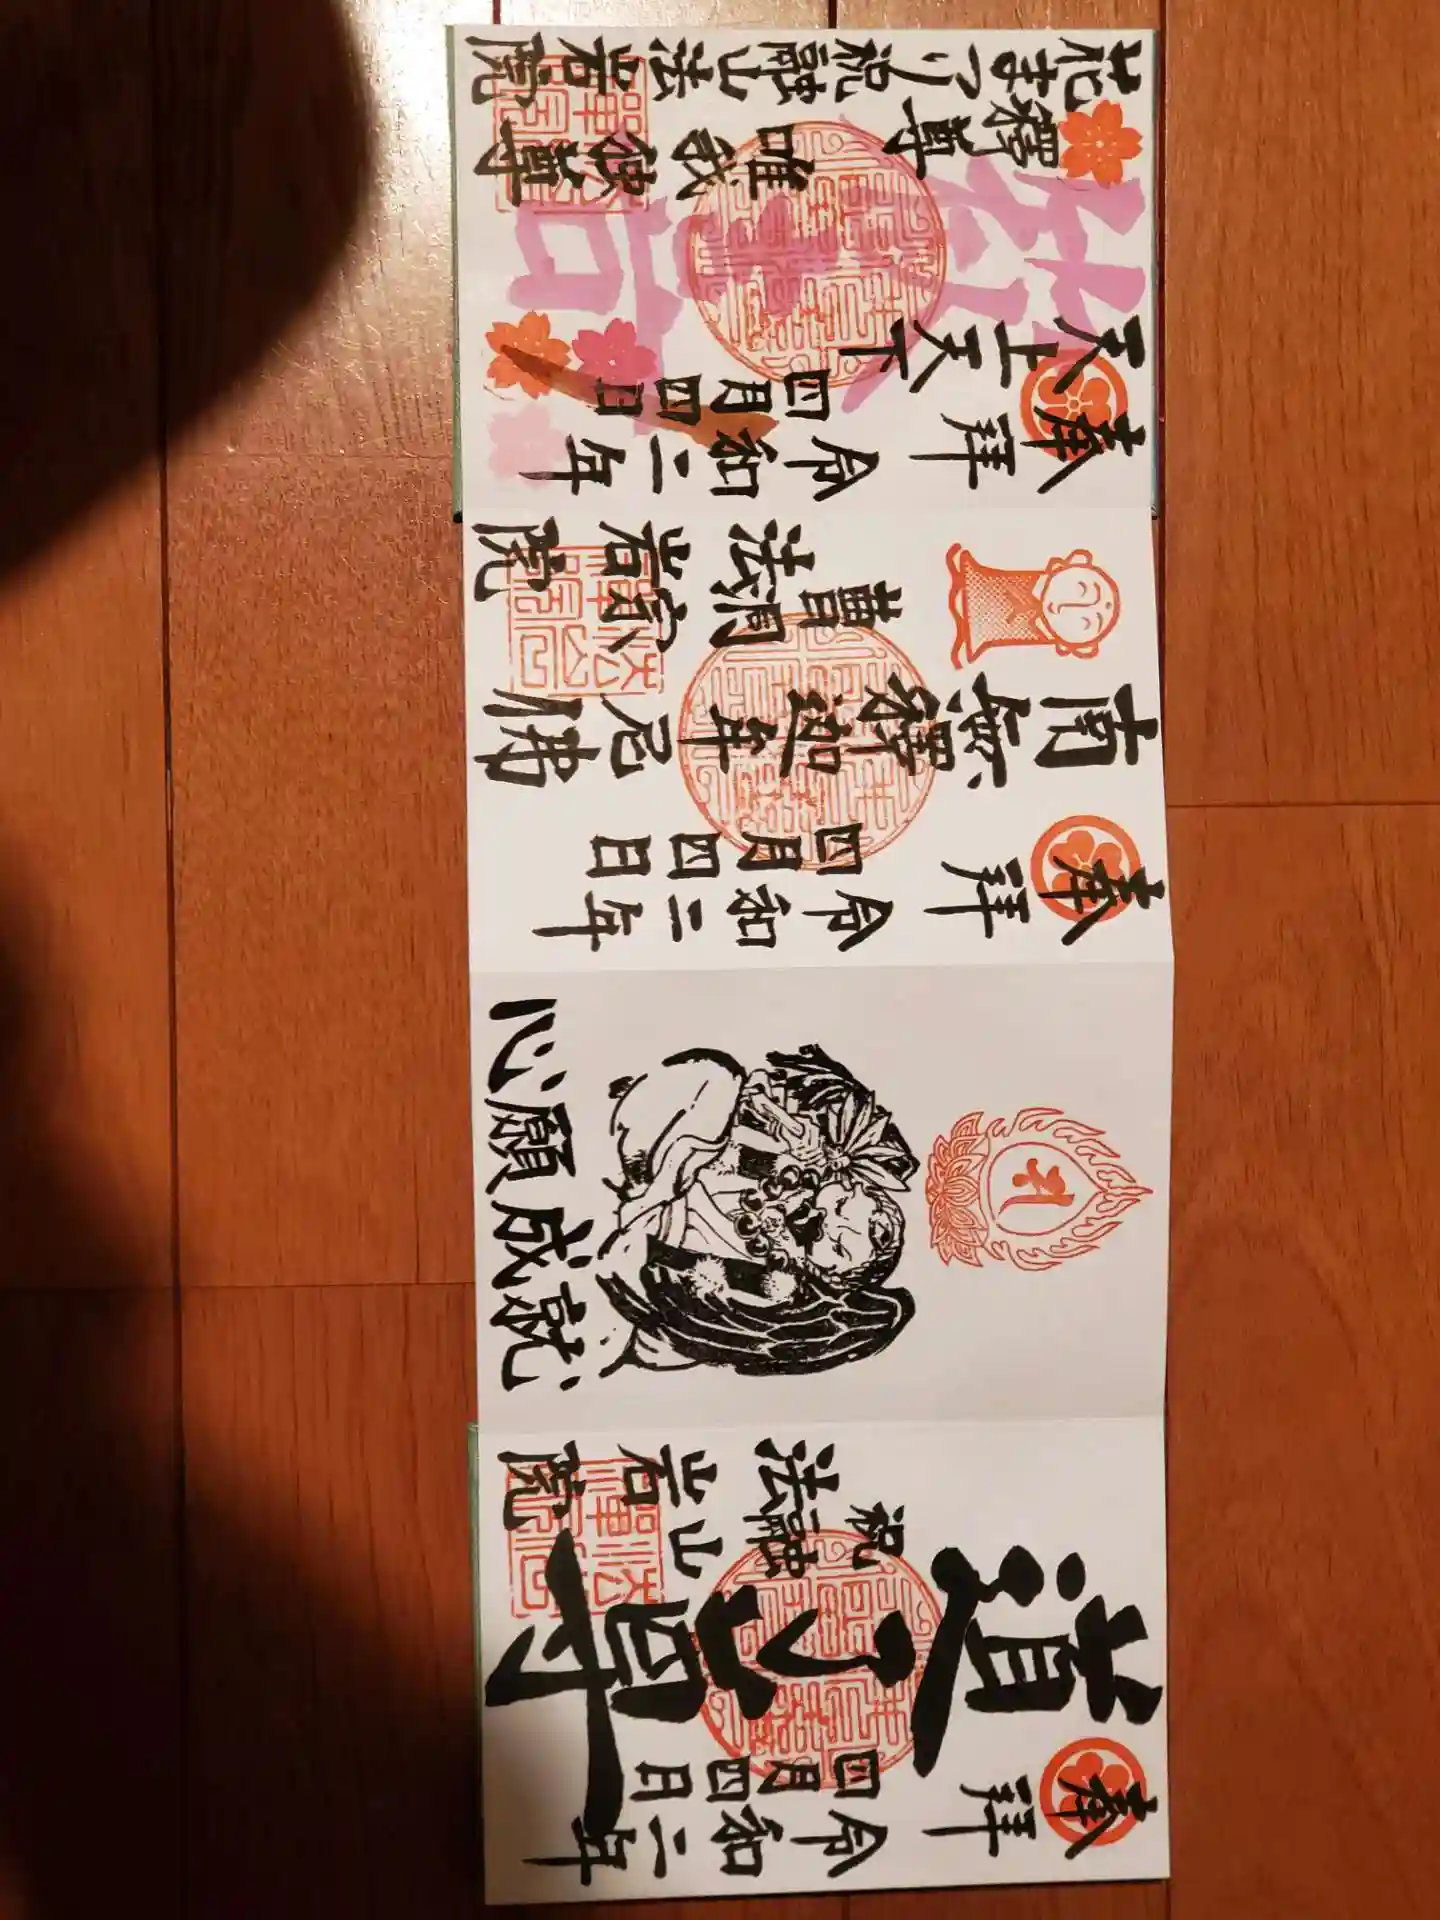 奉拝
令和二年
四月四日
道了尊
祝融山
法岩院
心願成就
奉拝
令和二年
四月四日
南無釋迦牟尼佛
曹洞宗
法岩院
奉拝
令和二年
四月四日
天上天下
唯我独尊
釋尊
花まつり
祝融山
法岩院